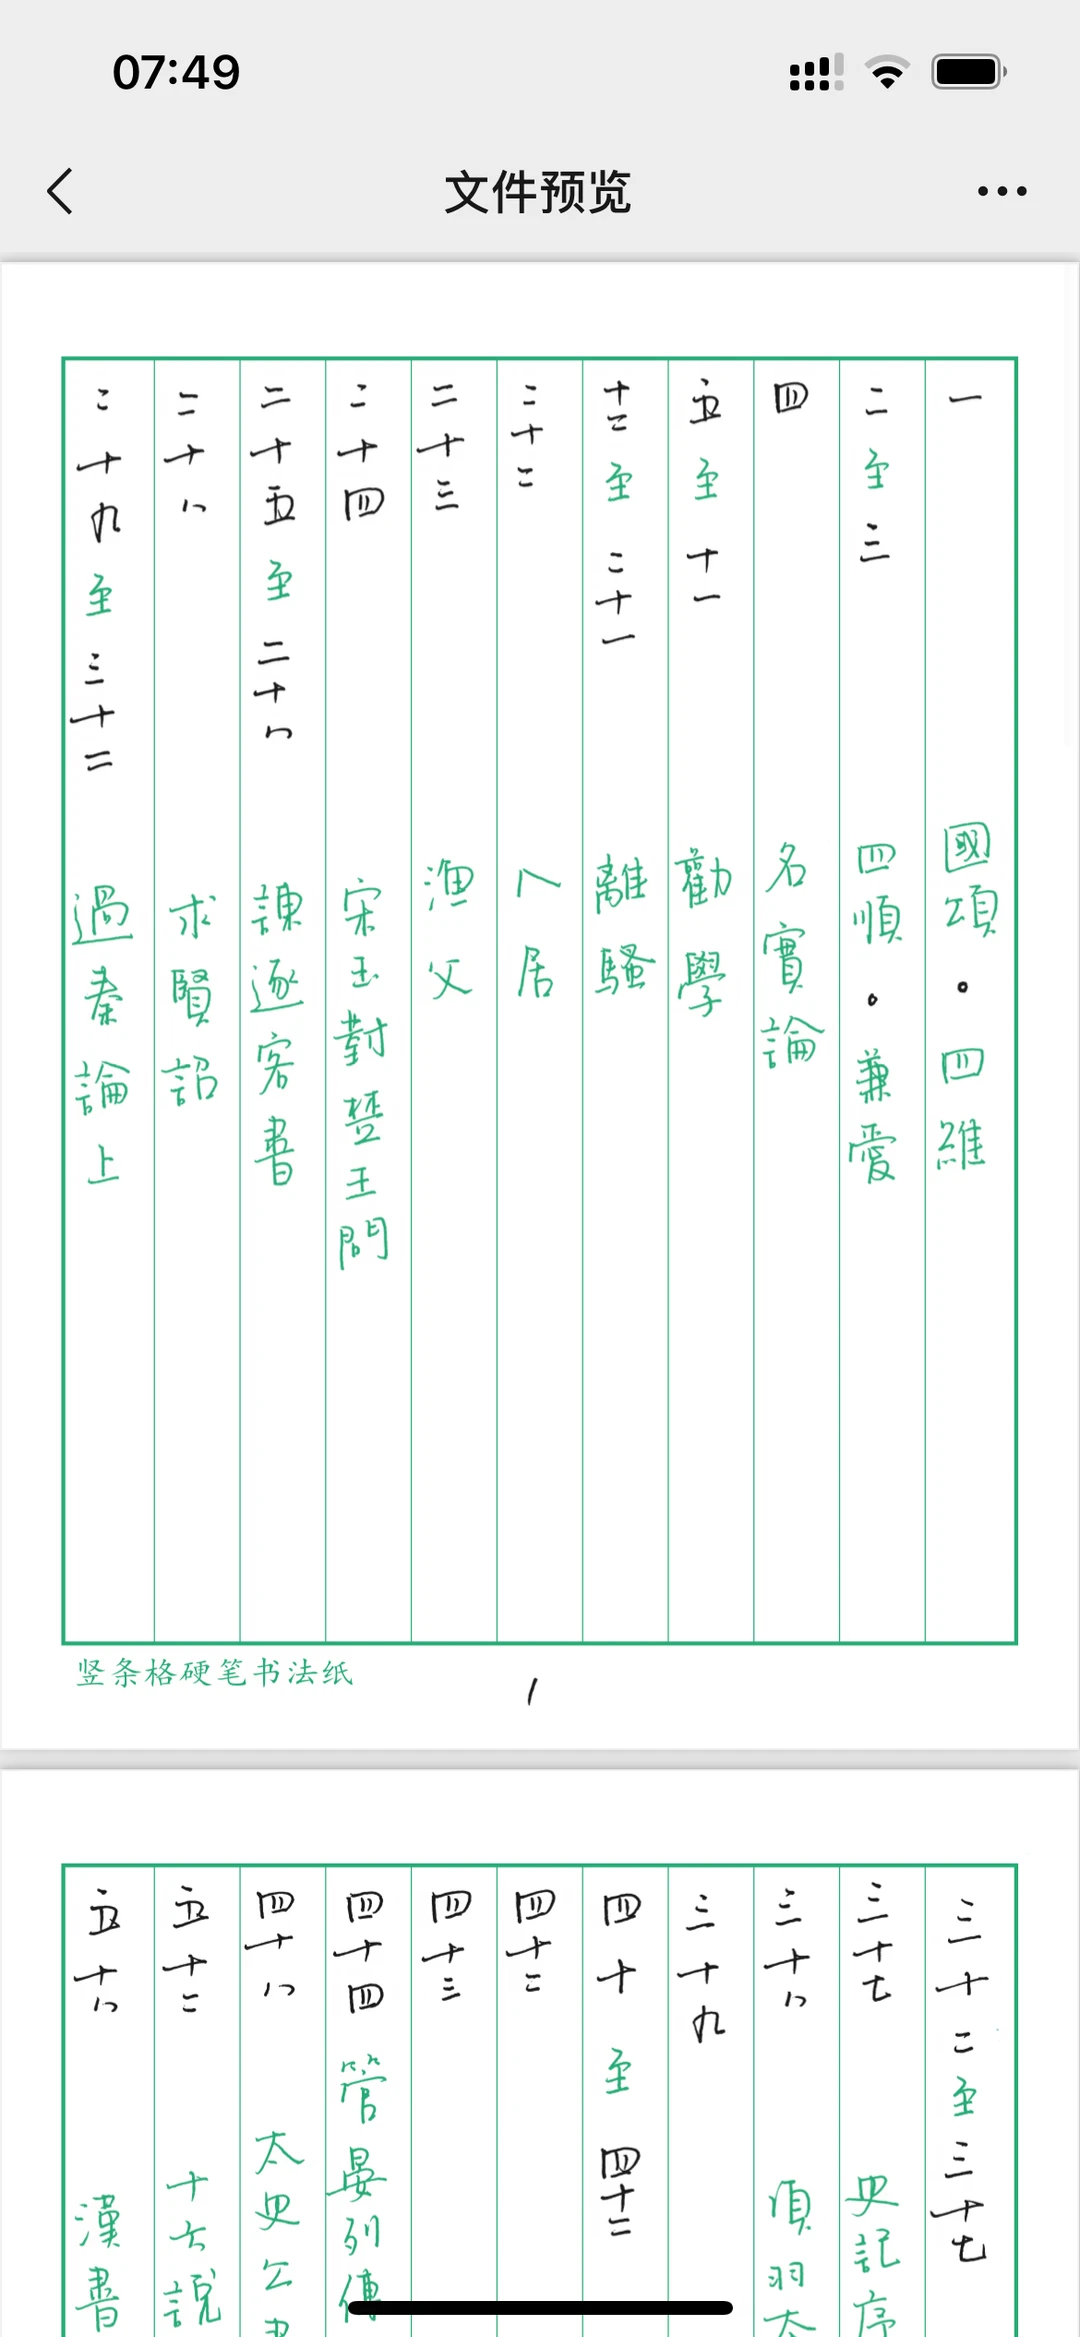 07:49
文件预览
一 國頌。四維
二至三 四順。兼愛
四 名實論
五至十一 勸學
十二至二十一 離騷
二十二 卜居
二十三 漁父
二十四 宋玉對楚王問
二十五至二十八 諫逐客書
二十八 求賢詔
二十九至三十二 過秦論上
竖条格硬笔书法纸
1
三十二至三十七
三十七 史記序
三十八 項羽本
三十九
四十至四十二
四十二
四十三
四十四 管晏列傳
四十八 太史公書
五十二 十六說
五十八 漢書